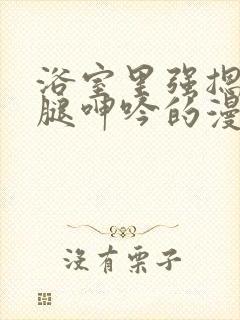 浴室里强揌
腿呻吟的漫
没有栗子